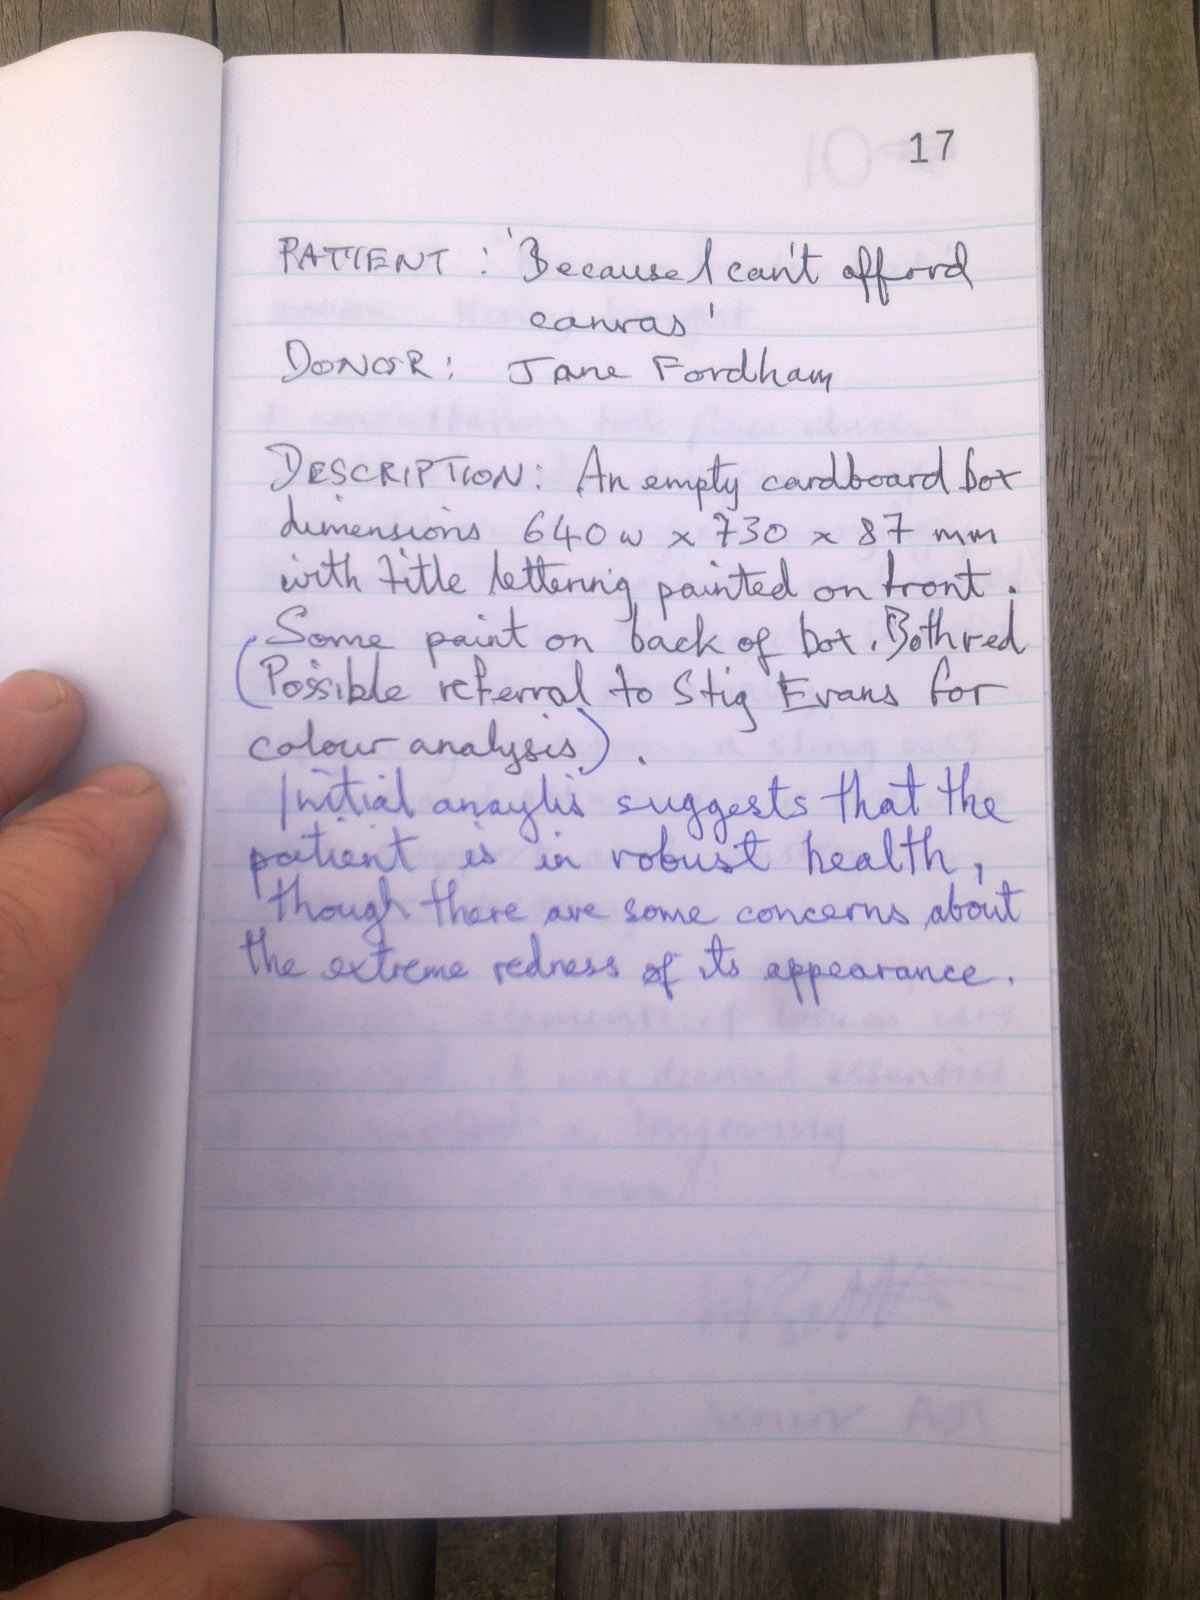 17
PATIENT : 'Because I can't afford
canvas'
DONOR: Jane Fordham
DESCRIPTION: An empty cardboard box
dimensions 640 w x 730 x 87 mm
with title lettering painted on front.
Some paint on back of box. Both red
(Possible referral to Stig Evans for
colour analysis).
Initial anaylis suggests that the
patient is in robust health,
though there are some concerns about
the extreme redness of its appearance.